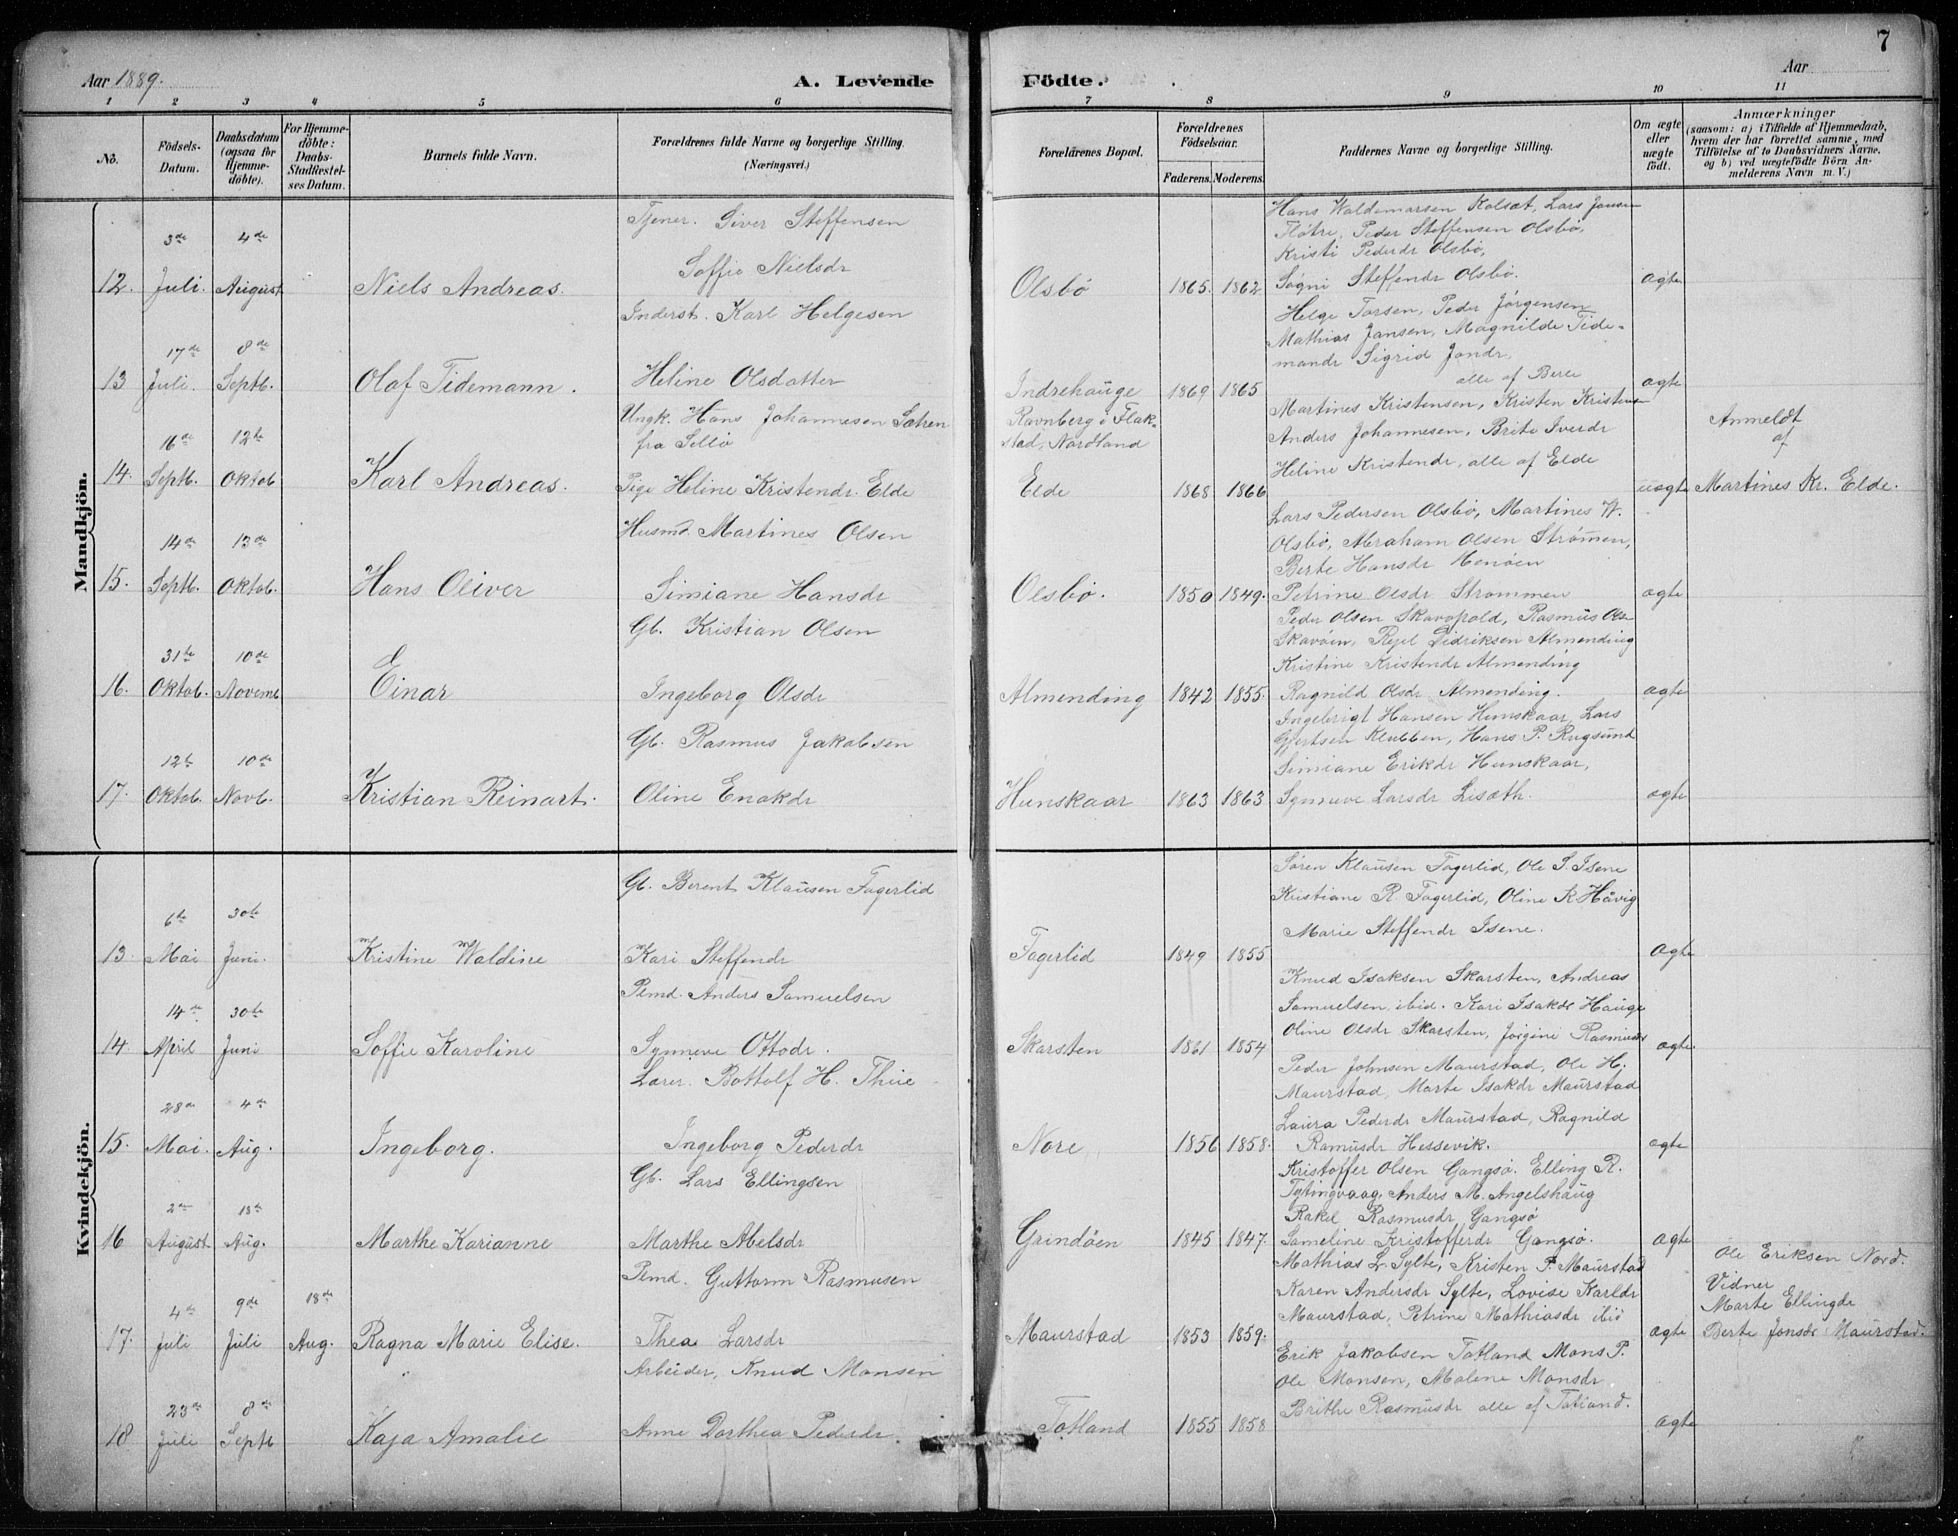 7
Aar 1889.
A. Levende Födte.
Aar
1 2 3 4 5 6 7 8 9 10 11
No.
Födsels-Datum.
Daabsdatum (ogsaa for Hjemmedöbte).
For Hjemmedöbte: Daabs-Stadfæstelses Datum.
Barnets fulde Navn.
Forældrenes fulde Navne og borgerlige Stilling. (Næringsvei.)
Forælärenes Bopæl.
Forældrenes Födselsaar.
Faderens. Moderens.
Faddernes Navne og borgerlige Stilling.
Om ægte eller uægte födt.
Anmærkninger (saasom: a) i Tilfælde af Hjemmedaab, hvem der har forrettet samme, med Tilföielse af to Daabsvidners Navne, og b) ved uægtefödte Börn Anmelderens Navn m. V.)
Mandkjön.
Tjener. Siver Steffensen
Hans Waldemarsen Kolsæt, Lars Jansen
3de 4de
Fløtre, Peder Steffensen Olsbø,
Kristi Pederdr Olsbø,
Soffie Nielsdr
12. Juli. August Niels Andreas. Olsbö 1865. 1862 Søgni Steffendr Olsbø. ægte
Inderst. Karl Helgesen
Helge Torsen, Peder Jørgensen
Mathias Jansen, Magnilde Tide-
17de 8de
mandr Sigrid Jondr,
13 Juli. Septb. Olaf Tidemann. Heline Olsdatter Indrehauge 1869 1865 alle af Berle ægte
Ungk. Hans Johannesen Sætren
fra Sellø
Ravnberg i Flak-
stad, Nordland
Martines Kristensen, Kristen Kristensen
Anders Johannesen, Brite Iverdr
Anmeldt
af
16de 12te
Heline Kristendr, alle af Elde
14. Septb. Oktob Karl Andreas. Pige Heline Kristendr. Elde Elde 1868 1866 uægte Martines Kr. Elde.
Husmd Martines Olsen
Lars Pedersen Olsbø, Martines W.
14de 13de
Olsbø, Abraham Olsen Strømmen,
Berte Hansdr Menøen
15. Septb. Oktob. Hans Oliver Simiane Hansdr Olsbö. 1850 1849. Petrine Olsdr Strommen ægte
Gb. Kristian Olsen
Peder Olsen Skavopold, Rasmus Olsen
31te 10de
Skavøen, Rejel Didriksen Almending
Kristine Kristendr Almending
16. Oktob. Novemb Einar Ingeborg Olsdr Almending 1842 1855. Ragnild Olsdr Almending. ægte
Gb. Rasmus Jakobsen
Ingebrigt Hansen Hunskaar, Lars
12te 10de
Gjertsen Klubben, Hans P. Rugsund
Simiane Erikdr Hunskaar,
17. Oktob. Novb. Kristian Reinart. Oline Enokdr Hunskaar 1863 1863 Synneve Larsdr Lesæth. ægte
Kvindekjön.
Gb. Berent Klausen Fagerlid
Søren Klausen Fagerlid, Ole S. Isene
6te 30te
Kristiane R. Fagerlid, Oline R Håvig
Marie Steffendr Isene.
13. Mai Juni. Kristine Waldine Kari Steffendr Fagerlid 1849 1855 ægte
Pemd. Anders Samuelsen
Knud Isaksen Skarsten, Andreas
14de 30te
Samuelsen, ibid. Kari Isakdr Hauge
Oline Olsdr Skarsten, Jørgine Rasmusdr
14. April Juni Soffie Karoline Synneve Ottodr. Skarsten 1861 1854 ægte
Lærer. Bottolf H. Thue
Peder Johnsen Maurstad, Ole H.
28de 4de
Maurstad, Marte Isakdr Maurstad
Laura Pederdr Maurstad, Ragnild
15. Mai. Aug. Ingeborg. Ingeborg Pederdr Nore 1856 1858. Rasmusdr Hessevik. ægte
Gb. Lars Ellingsen
Kristoffer Olsen Gangsø. Elling R.
2den 18de
Tytingvaag, Anders M. Angelshaug
Rakel Rasmusdr Gangsø
16 August Aug. Marthe Karianne Marthe Abelsdr Grindöen 1845 1847. Sameline Kristofferdr Gangsø. ægte
Pemd. Guttorm Rasmusen
Mathias L. Sylte, Kristen P. Maurstad
Ole Eriksen Nord.
4de 9de 18de
Karen Andersdr Sylte, Lovise Karldr
Vidner
Maurstad, Petrine Mathiasdr ibid
Marte Ellingdr
17. Juli Juli Aug. Ragna Marie Elise. Thea Larsdr Maurstad 1853 1859. ægte Berte Jonsdr Maurstad.
Arbeider, Knud Monsen
Erik Jakobsen Totland Mons P.
Ole Monsen, Malene Monsdr
23de 8de
Brithe Rasmusdr alle af Totland.
18 Juli Septb Kaja Amalie Anne Dorthea Pederdr. Totland 1855 1858 ægte